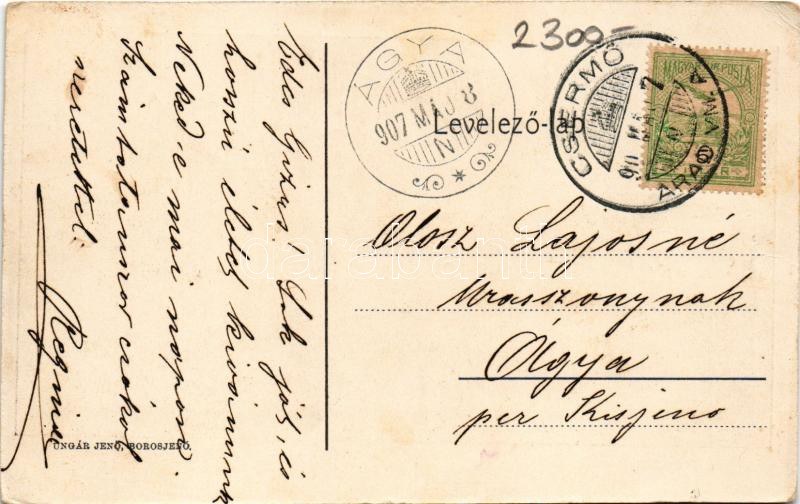 Édes Gizus! Sok jót, és
hosszú életet kivánunk
Neked e mai napon
Számtalanszor csókol
szeretettel:
Regina
UNGÁR JENŐ, BOROSJENŐ.
2300-
ÁGYA
907 MÁJ 8
N
Levelező-lap
CSERMŐ
907 MÁJ 7
ARAD VM.
MAGYAR KIR. POSTA
Olosz Lajosné
Urasszonynak
Ágya
per Kisjenő
darabanth